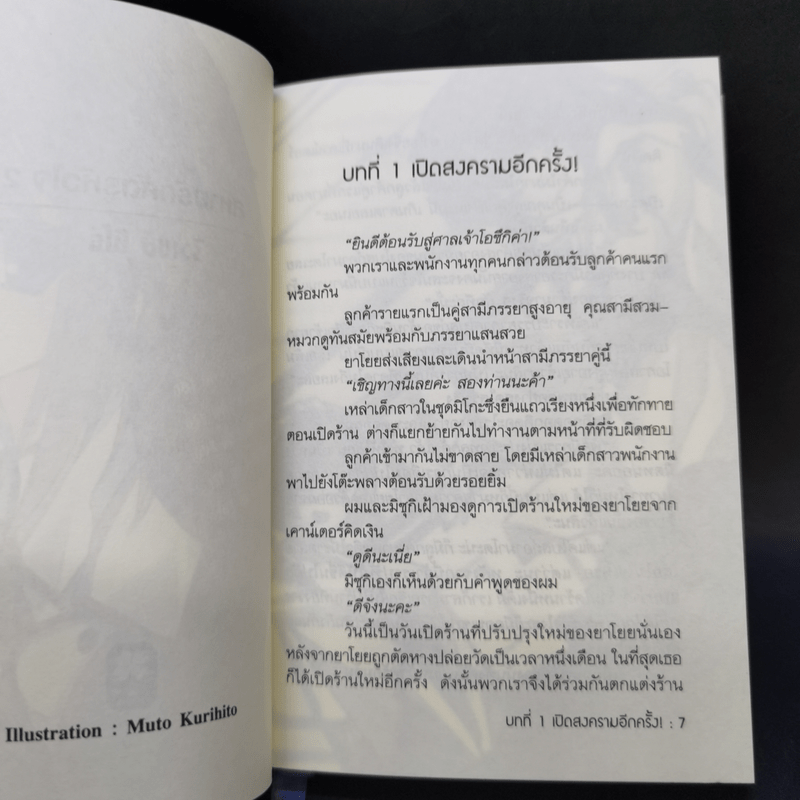 Illustration : Muto Kurihito
บทที่ 1 เปิดสงครามอีกครั้ง!
“ยินดีต้อนรับสู่ศาลเจ้าโอซึกิค่า!”
พวกเราและพนักงานทุกคนกล่าวต้อนรับลูกค้าคนแรก
พร้อมกัน
ลูกค้ารายแรกเป็นคู่สามีภรรยาสูงอายุ คุณสามีสวม-
หมวกดูทันสมัยพร้อมกับภรรยาแสนสวย
ยาโยยส่งเสียงและเดินนำหน้าสามีภรรยาคู่นี้
“เชิญทางนี้เลยค่ะ สองท่านนะค้า”
เหล่าเด็กสาวในชุดมิโกะซึ่งยืนแถวเรียงหนึ่งเพื่อทักทาย
ตอนเปิดร้าน ต่างก็แยกย้ายกันไปทำงานตามหน้าที่ที่รับผิดชอบ
ลูกค้าเข้ามากันไม่ขาดสาย โดยมีเหล่าเด็กสาวพนักงาน
พาไปยังโต๊ะพลางต้อนรับด้วยรอยยิ้ม
ผมและมิซุกิเฝ้ามองดูการเปิดร้านใหม่ของยาโยยจาก
เคาน์เตอร์คิดเงิน
“ดูดีนะเนี่ย”
มิซุกิเองก็เห็นด้วยกับคำพูดของผม
“ดีจังนะคะ”
วันนี้เป็นวันเปิดร้านที่ปรับปรุงใหม่ของยาโยยนั่นเอง
หลังจากยาโยยถูกตัดหางปล่อยวัดเป็นเวลาหนึ่งเดือน ในที่สุดเธอ
ก็ได้เปิดร้านใหม่อีกครั้ง ดังนั้นพวกเราจึงได้ร่วมกันตกแต่งร้าน
บทที่ 1 เปิดสงครามอีกครั้ง! : 7